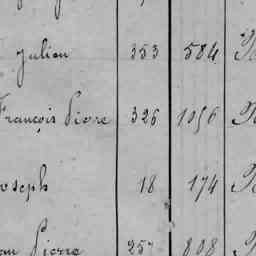 Julien 353 584
François Pierre 326 1096
oseph 18 174
an Pierre 257 808